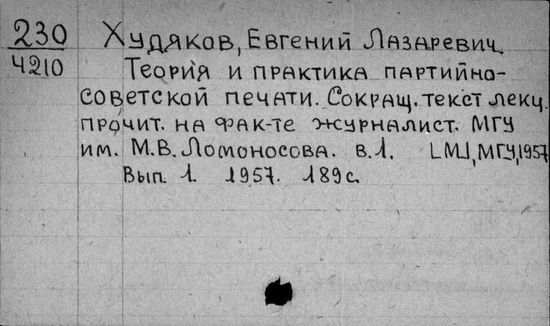 230 Худяков, Евгений Лазаревич.
4210 Теория и практика партийно-
советской печати. Сокращ. текст лекц.
прочит. на фак-те журналист. МГУ
им. М.В. Ломоносова. в.1. [М.], МГУ, 1957
Вып. 1. 1957. 189с.